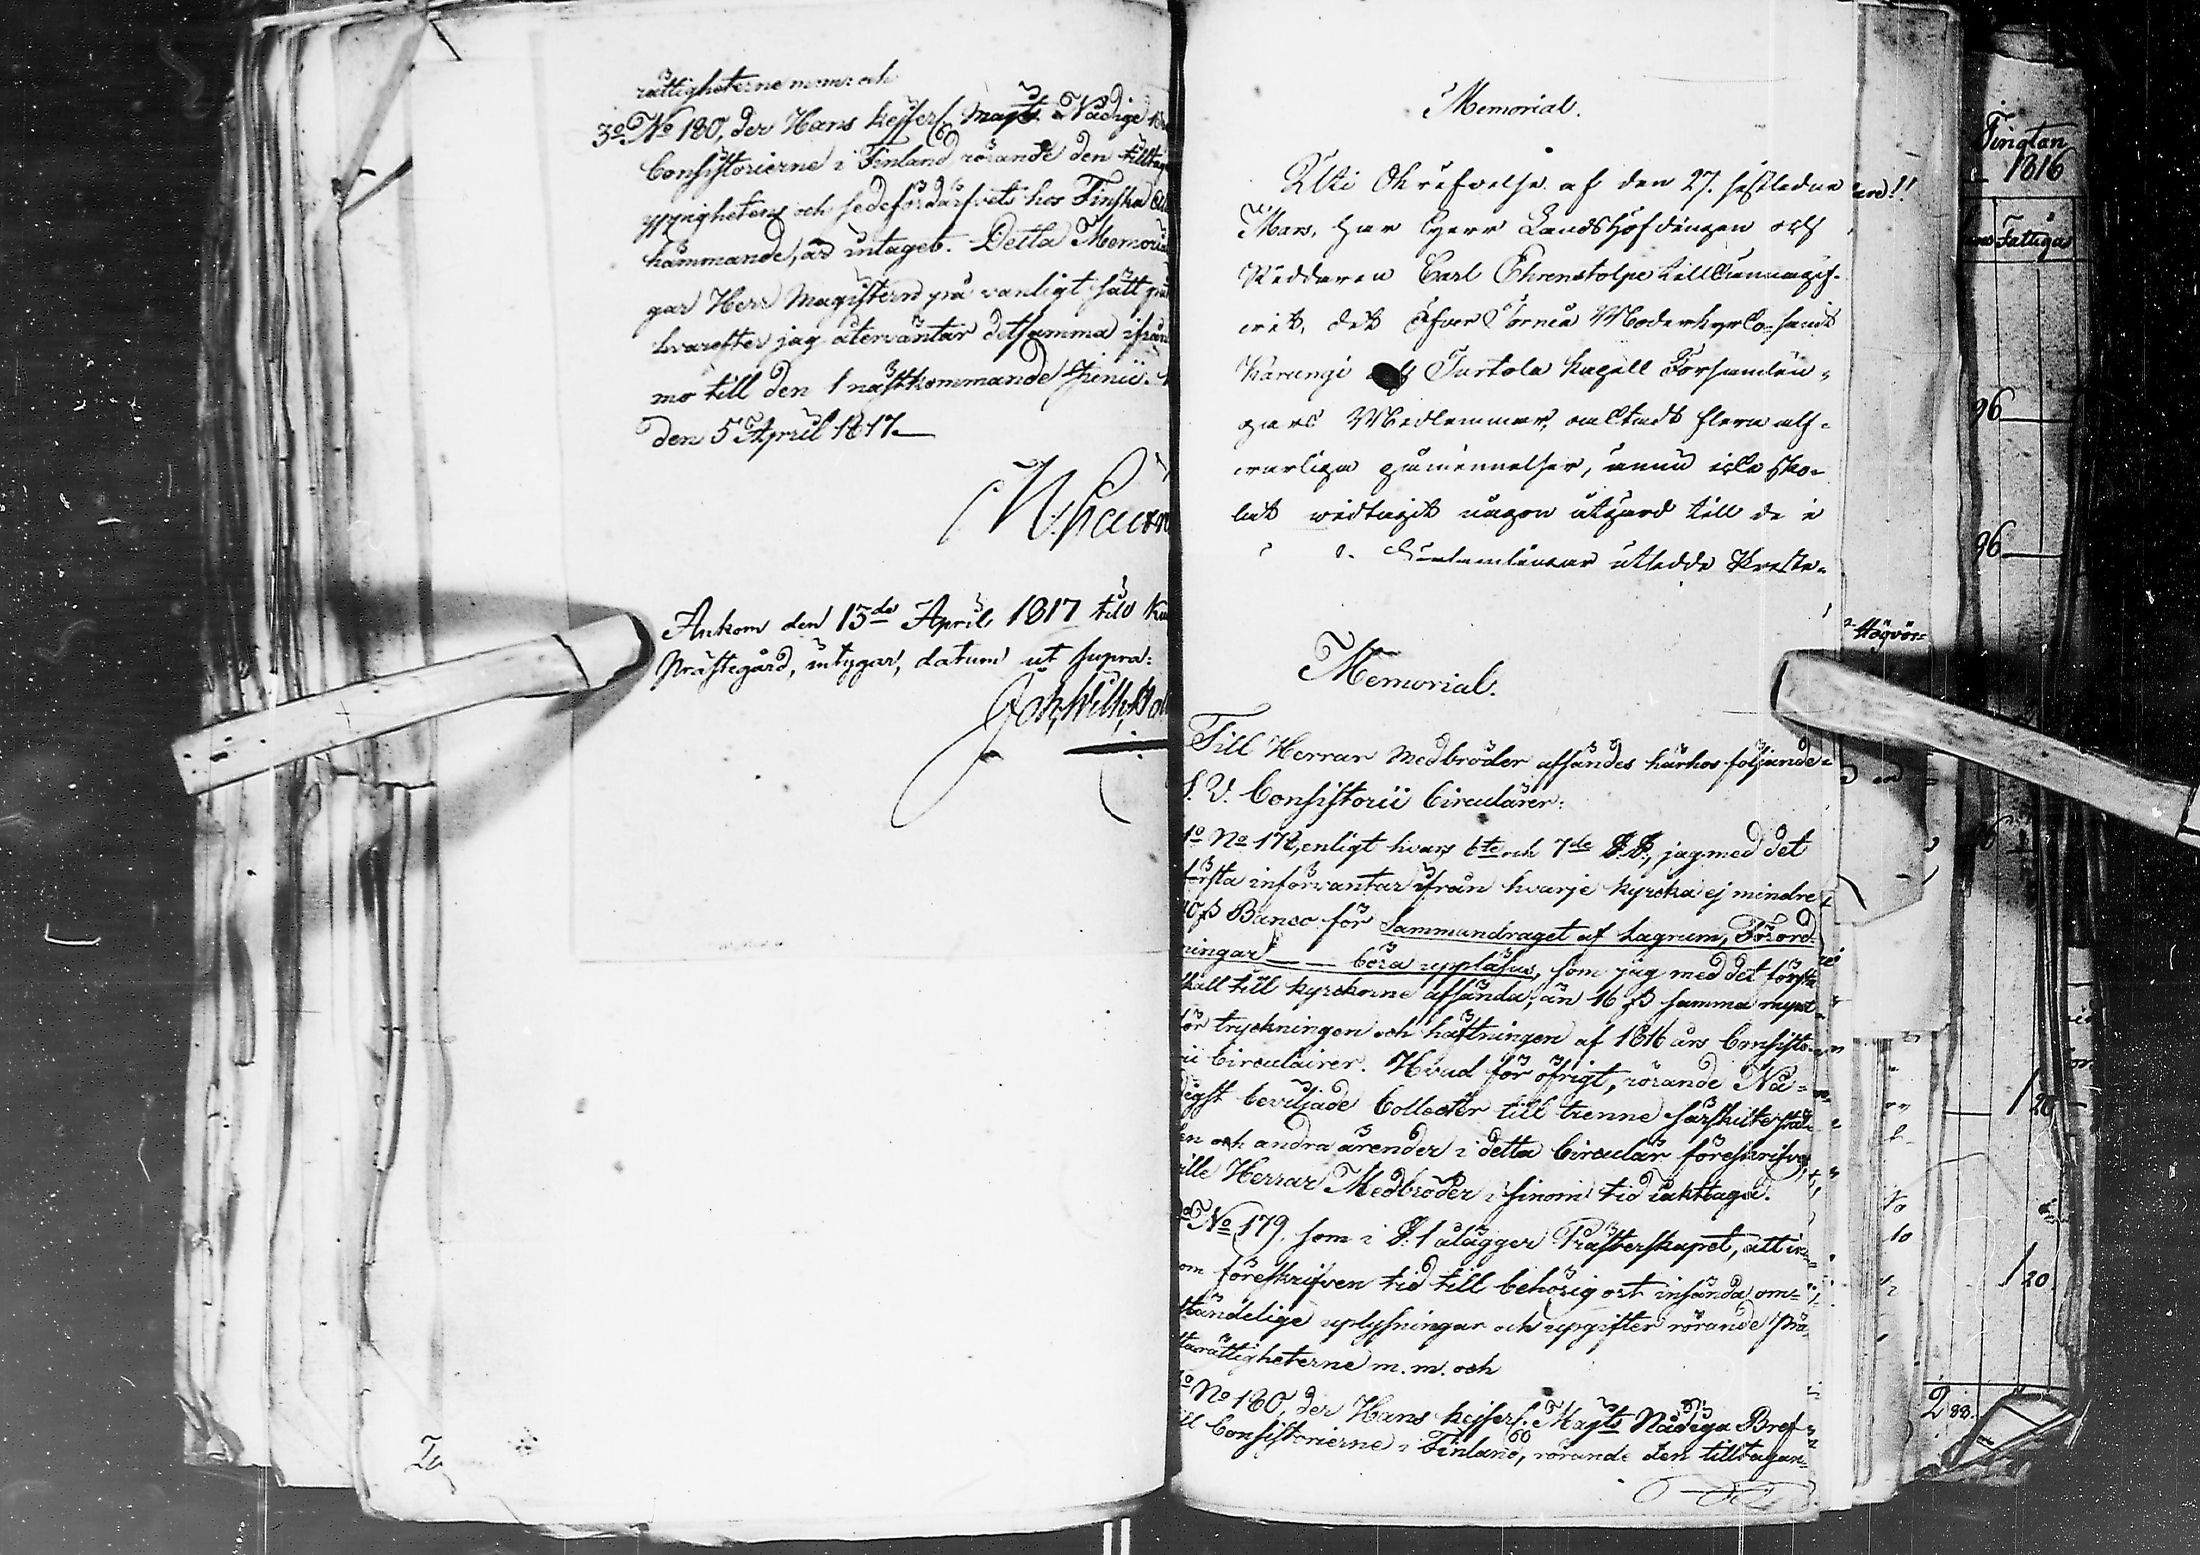 rättigheterne m.m. och
3o No 180, der Hans Kejserl. Majts Nådige
Consistorierne i Finland rörande den tilltag
yppigheten och sedeförderfvets hos Finska
hämmande, är intaget. Detta Memoria
gar Herr Magistern på vanligt sätt
hvarefter jag återväntar detsamma ifrån
mo till den 1 nästkommande Junii.
den 5 April 1817.
Ankom den 13de April 1817 till
Prästegård, intygar, datum ut supra:
Joh. Wilh.
Memorial.
Uti Skrifvelse af den 27. sistledne
Mars, har Herr Landshöfdingen och
Riddaren Carl Ehrenstolpe tillkännagif-
vit, det Öfver Torneå Moderkyrko- samt
Karungi och Turtola Kapell Församlin-
gars Medlemmar, oaktadt flera alf-
varliga påminnelser, ännu icke sko-
lat vidtagit någon åtgärd till de i
Församlingar utsedde
Memorial.
Till Herrar Medbröder afsändes härhos följande
S. V. Consistorii Circulärer:
1o No 178, enligt hvars 6te och 7de §.§., jag med det
första införväntar ifrån hvarje kyrcka ej mindre
40 ß Banco för Sammandraget af Lagrum, Förord-
ningar — — böra uppläsas, som jag med det första
skall till kyrckorne afsända, än 16 ß samma mynt
för tryckningen och häftningen af 1816 års Consisto-
rii Circulairer. Hvad för öfrigt, rörande Nå-
digst beviljade Collecter till trenne särskilte stäl-
len och andra ärender i detta Circulär föreskrifves,
ville Herrar Medbröder i sinom tid iakttaga.
No 179, som i §. 1 ålägger Prästerskapet, att in-
om föreskrifven tid till behörig ort insända om-
ständelige uplysningar och upgifter rörande Prä-
sterättigheterne m.m. och
No 180, der Hans Kejserl. Majts Nådiga Bref
till Consistorierne i Finland, rörande den tilltagan-
60
Tingtan
1816
Fattiga
96
96
Högvör-
1 20
1 20
2 88